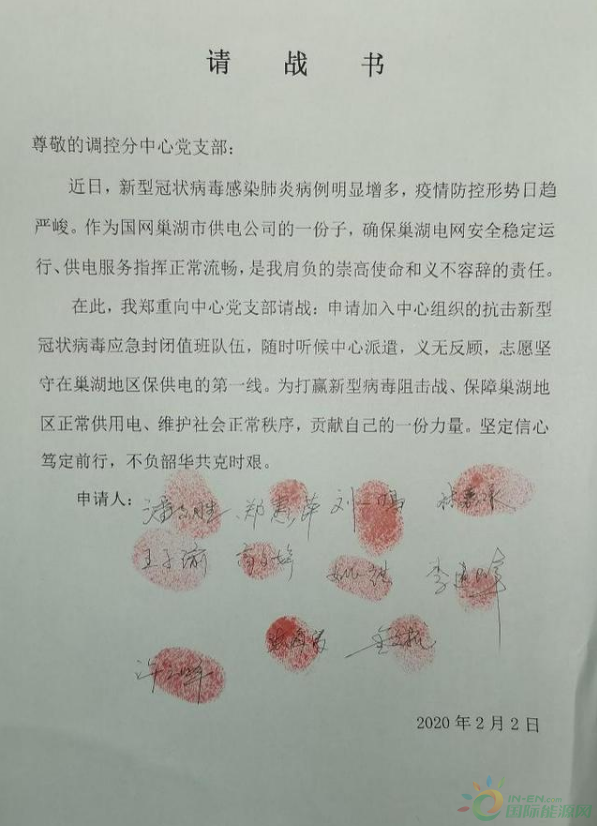 请战书
尊敬的调控分中心党支部：
近日，新型冠状病毒感染肺炎病例明显增多，疫情防控形势日趋
严峻。作为国网巢湖市供电公司的一份子，确保巢湖电网安全稳定运
行、供电服务指挥正常流畅，是我肩负的崇高使命和义不容辞的责任。
在此，我郑重向中心党支部请战：申请加入中心组织的抗击新型
冠状病毒应急封闭值班队伍，随时听候中心派遣，义无反顾，志愿坚
守在巢湖地区保供电的第一线。为打赢新型病毒阻击战、保障巢湖地
区正常供用电、维护社会正常秩序，贡献自己的一份力量。坚定信心
笃定前行，不负韶华共克时艰。
申请人：
2020 年 2 月 2 日
IN-EN.com
国际能源网